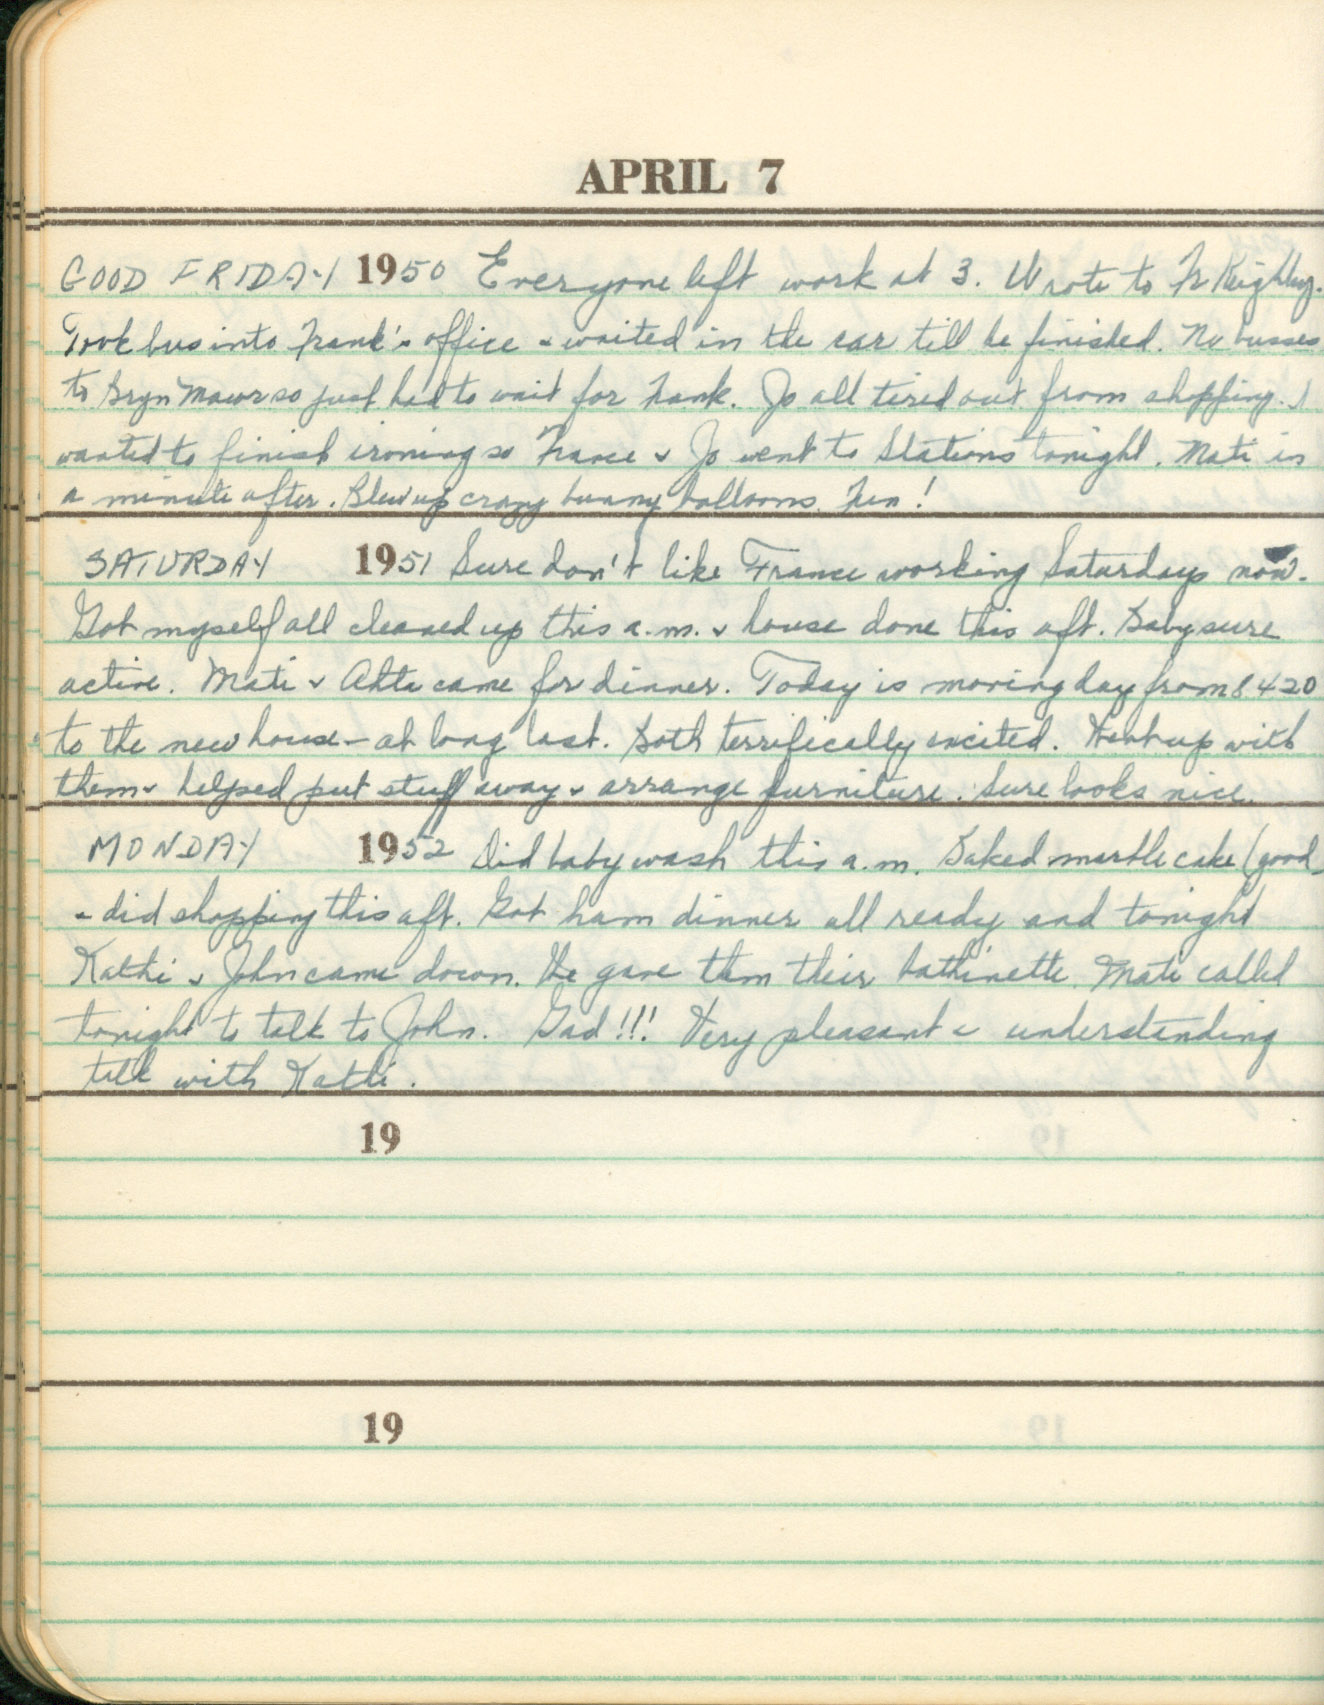 APRIL 7
GOOD FRIDAY 1950 Everyone left work at 3. Wrote to Fr Keighley.
Took bus into Frank's office & waited in the car till he finished. No busses
to Bryn Mawr so just had to wait for Frank. Jo all tired out from shopping. I
wanted to finish ironing so France & Jo went to Stations tonight. Mati in
a minute after. Blew up crazy bunny balloons. Fun!
SATURDAY 1951 Sure don't like France working Saturdays now.
Got myself all cleaned up this a.m. & house done this aft. Baby sure
active. Mati & came for dinner. Today is moving day from 8420
to the new house - at long last. Both terrifically excited. Went up with
them & helped put stuff away & arrange furniture. Sure looks nice.
MONDAY 1952 Did baby wash this a.m. Baked marble cake (good
& did shopping this aft. Got ham dinner all ready and tonight
Kathi & John came down. We gave them their bathinette. Mati called
tonight to talk to John. Gad!!! Very pleasant & understanding
talk with Kathi.
19
19